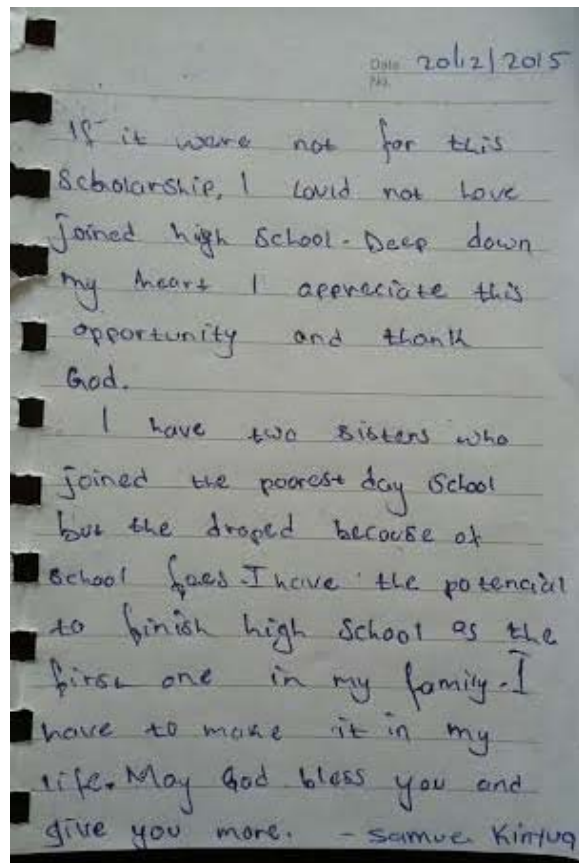 Date 20/12/2015
No.
If it were not for this
Scholarship, I could not have
joined high School. Deep down
my heart I appreciate this
opportunity and thank
God.
I have two sisters who
joined the poorest day School
but the droped because of
school faes. I have the potencial
to finish high School as the
first one in my family. I
have to make it in my
life. May God bless you and
give you more. - Samuel Kinyua